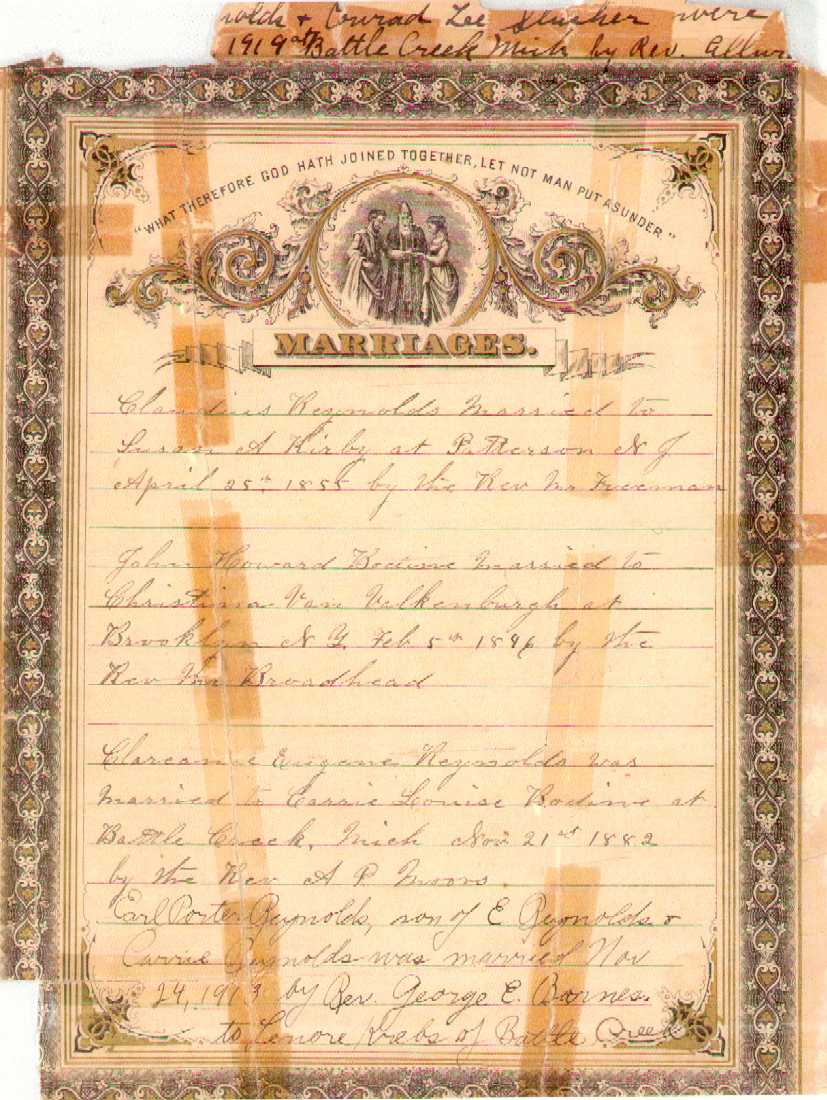 olds & Conrad Lee Slusher were
1919 at Battle Creek Mich by Rev.
"WHAT THEREFORE GOD HATH JOINED TOGETHER, LET NOT MAN PUT ASUNDER."
MARRIAGES.
Claudius Reynolds Married to
Susan A Kirby at Patterson N J
April 25th 1855 by the Rev Mr Freeman
John Howard Bodine Married to
Christina Van Valkenburgh at
Brooklyn N Y. Feb 5th 1846 by the
Rev Mr Broadhead
Clarance Eugene Reynolds was
Married to Carrie Louise Bodine at
Battle Creek, Mich Nov 21st 1882
by the Rev A P Moors.
Earl Porter Reynolds, son of E Reynolds &
Carrie Reynolds was married Nov
24, 1913 by Rev. George E. Barnes.
to Lenore Krebs of Battle Creek